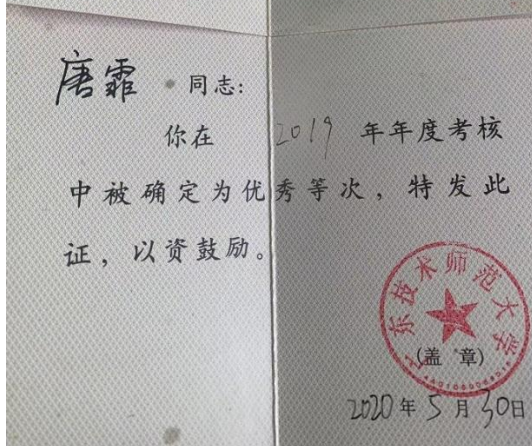 唐霏 同志:
你在 2019 年年度考核
中被确定为优秀等次，特发此
证，以资鼓励。
广东技术师范大学
(盖 章)
2020年5月30日